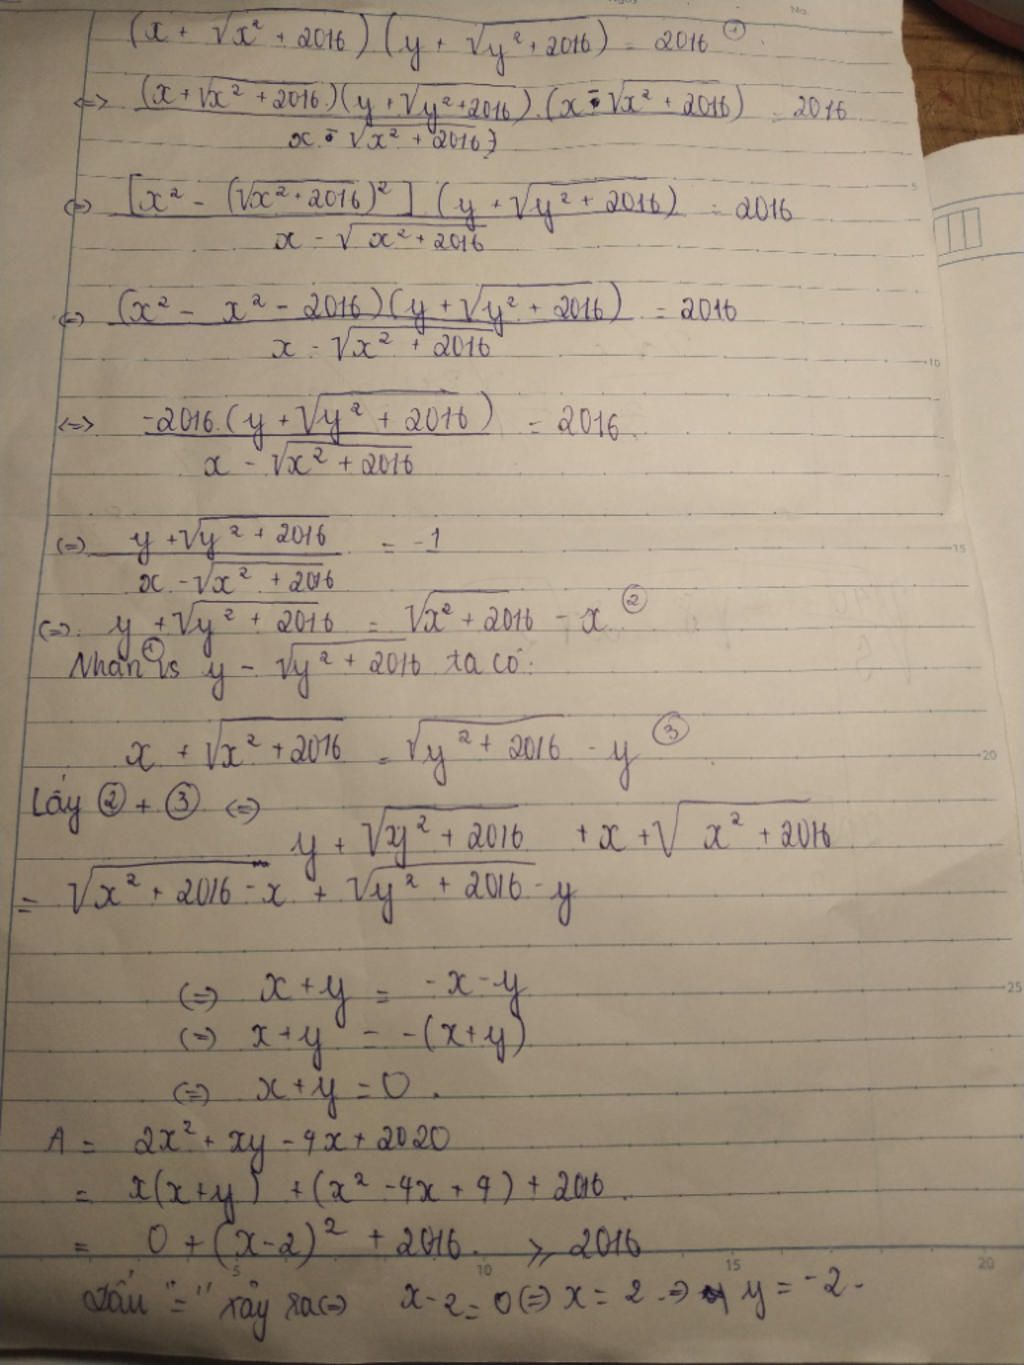 No.
(x + √x² + 2016) (y + √y² + 2016) = 2016 ①.
<=> (x + √x² + 2016)(y + √y² + 2016).(x - √x² + 2016) = 2016
x - √x² + 2016)
<=> [x² - (√x² + 2016)²] (y + √y² + 2016) = 2016
x - √x² + 2016
<=> (x² - x² - 2016)(y + √y² + 2016) = 2016
x - √x² + 2016
<=> -2016.(y + √y² + 2016) = 2016.
x - √x² + 2016
<=> y + √y² + 2016 = -1
x - √x² + 2016
<=>. y + √y² + 2016 = √x² + 2016 - x ②
Nhân ① vs y - √y² + 2016 ta có:
x + √x² + 2016 = √y² + 2016 - y ③
Lấy ② + ③ <=>
y + √y² + 2016 + x + √x² + 2016
= √x² + 2016 - x + √y² + 2016 - y
<=> x + y = -x - y
<=> x + y = -(x + y)
<=> x + y = 0.
A = 2x² + xy - 4x + 2020
= x(x + y) + (x² - 4x + 4) + 2016.
= 0 + (x - 2)² + 2016. ≥ 2016
Dấu "=" xảy ra <=> x - 2 = 0 <=> x = 2 => y = -2.
5
10
15
20
25
5
10
15
20